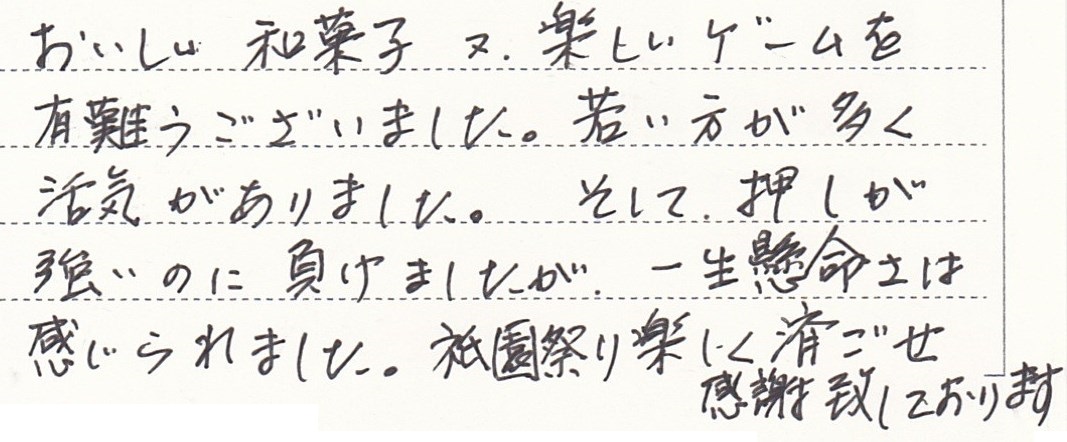 おいしい 和菓子 又、楽しいゲームを
有難うございました。若い方が多く
活気がありました。 そして、押しが
強いのに負けましたが、一生懸命さは
感じられました。祇園祭り楽しく済ごせ
感謝致しております